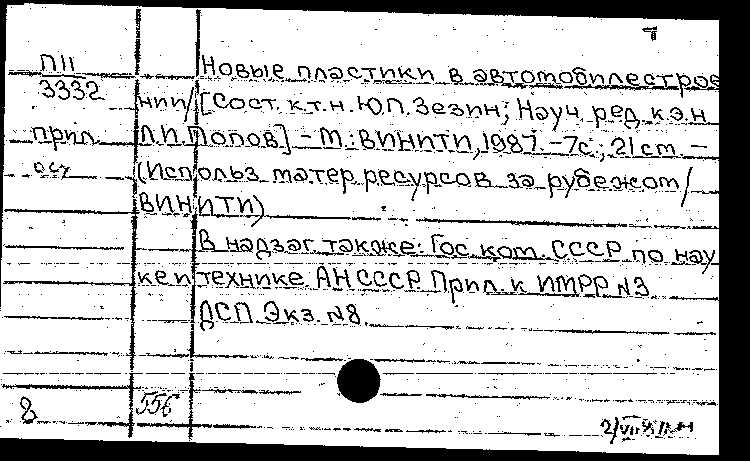 7
П11
3332
прил.
Новые пластики в автомобилестрое
нии/[Сост. к.т.н. Ю.П. Зезин; Науч. ред. к.э.н.
Л.И. Попов] - М.: ВИНИТИ, 1987. - 7с.; 21 cm. -
(Использ. матер. ресурсов за рубежом/
ВИНИТИ)
В надзаг. также: Гос. ком. СССР по нау
ке и технике. АН СССР. Прил. к ИМРР N3
ДСП. Экз. N8.
8
556